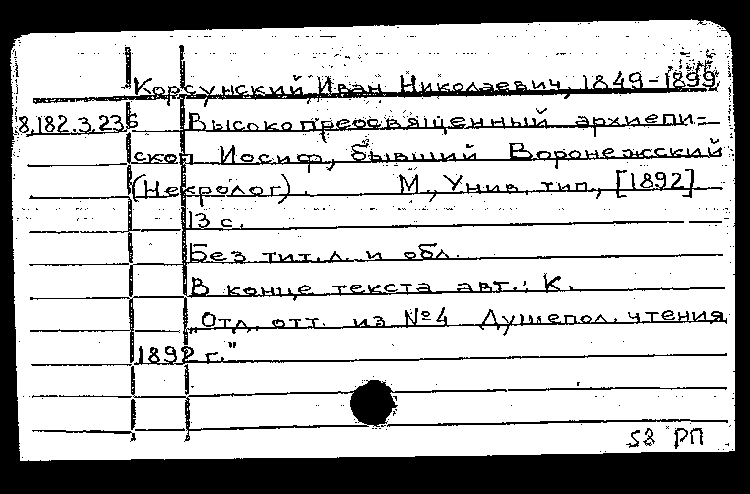 Корсунский, Иван Николаевич, 1849-1899
8.182.3.236 Высокопреосвященный архиепи=
скоп Иосиф, бывший Воронежский
(Некролог). М., Унив. тип., [1892]
13 с.
Без тит. л. и обл.
В конце текста авт.: К.
„Отд. отт. из №4 Душепол. чтения
1892 г."
58 РП